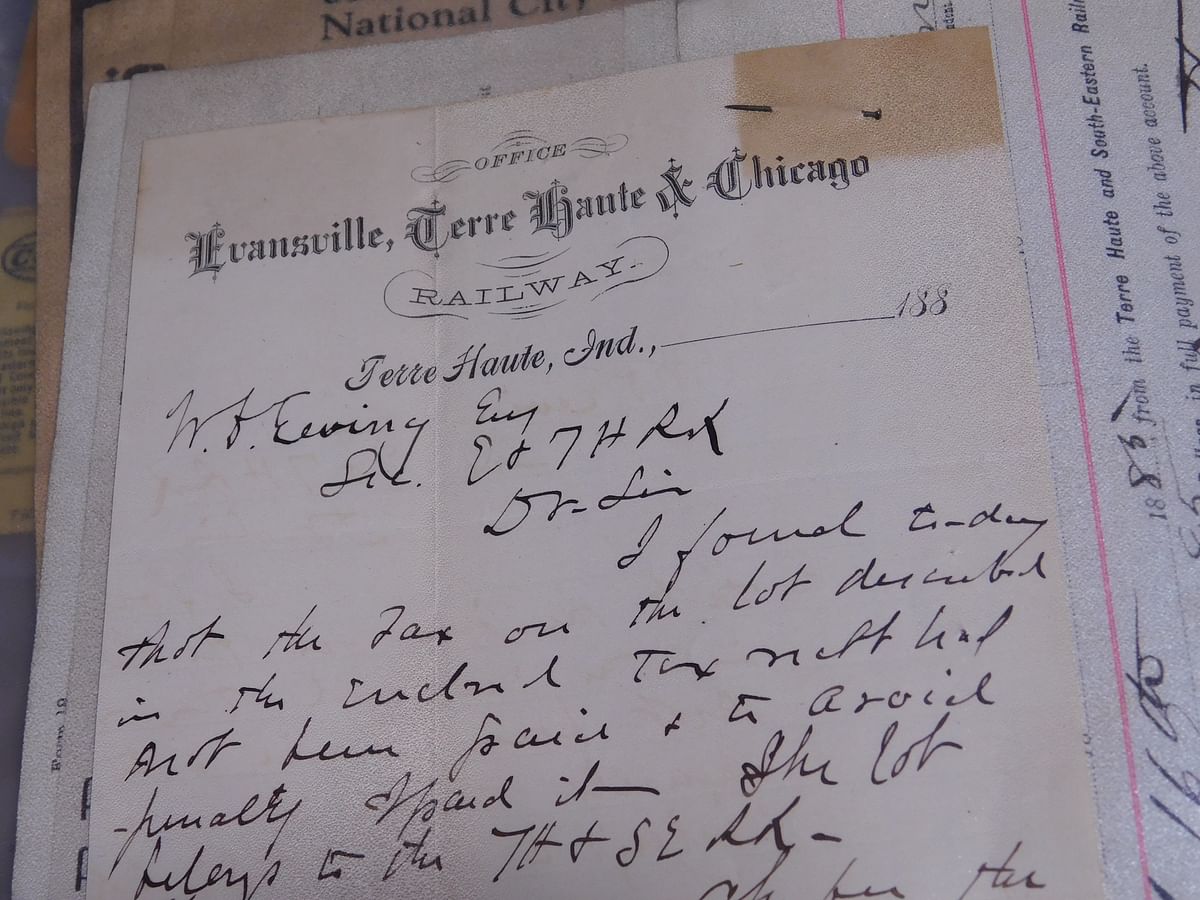 National City
OFFICE
Evansville, Terre Haute & Chicago
RAILWAY.
Terre Haute, Ind., 188
W. D. Ewing Esq
Sec. E & T H RR
Dr. Sir
I found to-day
that the Tax on the lot described
in the enclosed Tax rect had
not been paid & to avoid
penalty I paid it — The lot
belongs to the TH & SE RR —
the
Form 19
1883, from the Terre Haute and South-Eastern Railr
in full payment of the above account.